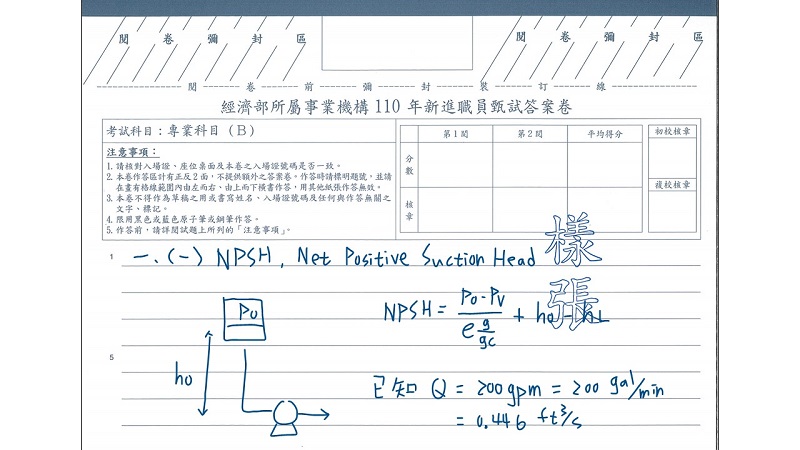 閱卷彌封區
閱卷彌封區
閱卷前彌封裝訂線
經濟部所屬事業機構 110 年新進職員甄試答案卷
考試科目：專業科目（B）
注意事項：
1. 請核對入場證、座位桌面及本卷之入場證號碼是否一致。
2. 本卷作答區計有正反 2 面，不提供額外之答案卷。作答時請標明題號，並請
在畫有格線範圍內由左而右、由上而下橫書作答，用其他紙張作答無效。
3. 本卷不得作為草稿之用或書寫姓名、入場證號碼及任何與作答無關之
文字、標記。
4. 限用黑色或藍色原子筆或鋼筆作答。
5. 作答前，請詳閱試題上所列的「注意事項」。
第 1 閱 第 2 閱 平均得分
分數
核章
初校核章
複校核章
樣張
1
一、(一) NPSH, Net Positive Suction Head
P0
h0
NPSH = (P0-Pv)/(ρ g/gc) + h0 - hL
5
已知 Q = 200 gpm = 200 gal/min
= 0.446 ft³/s